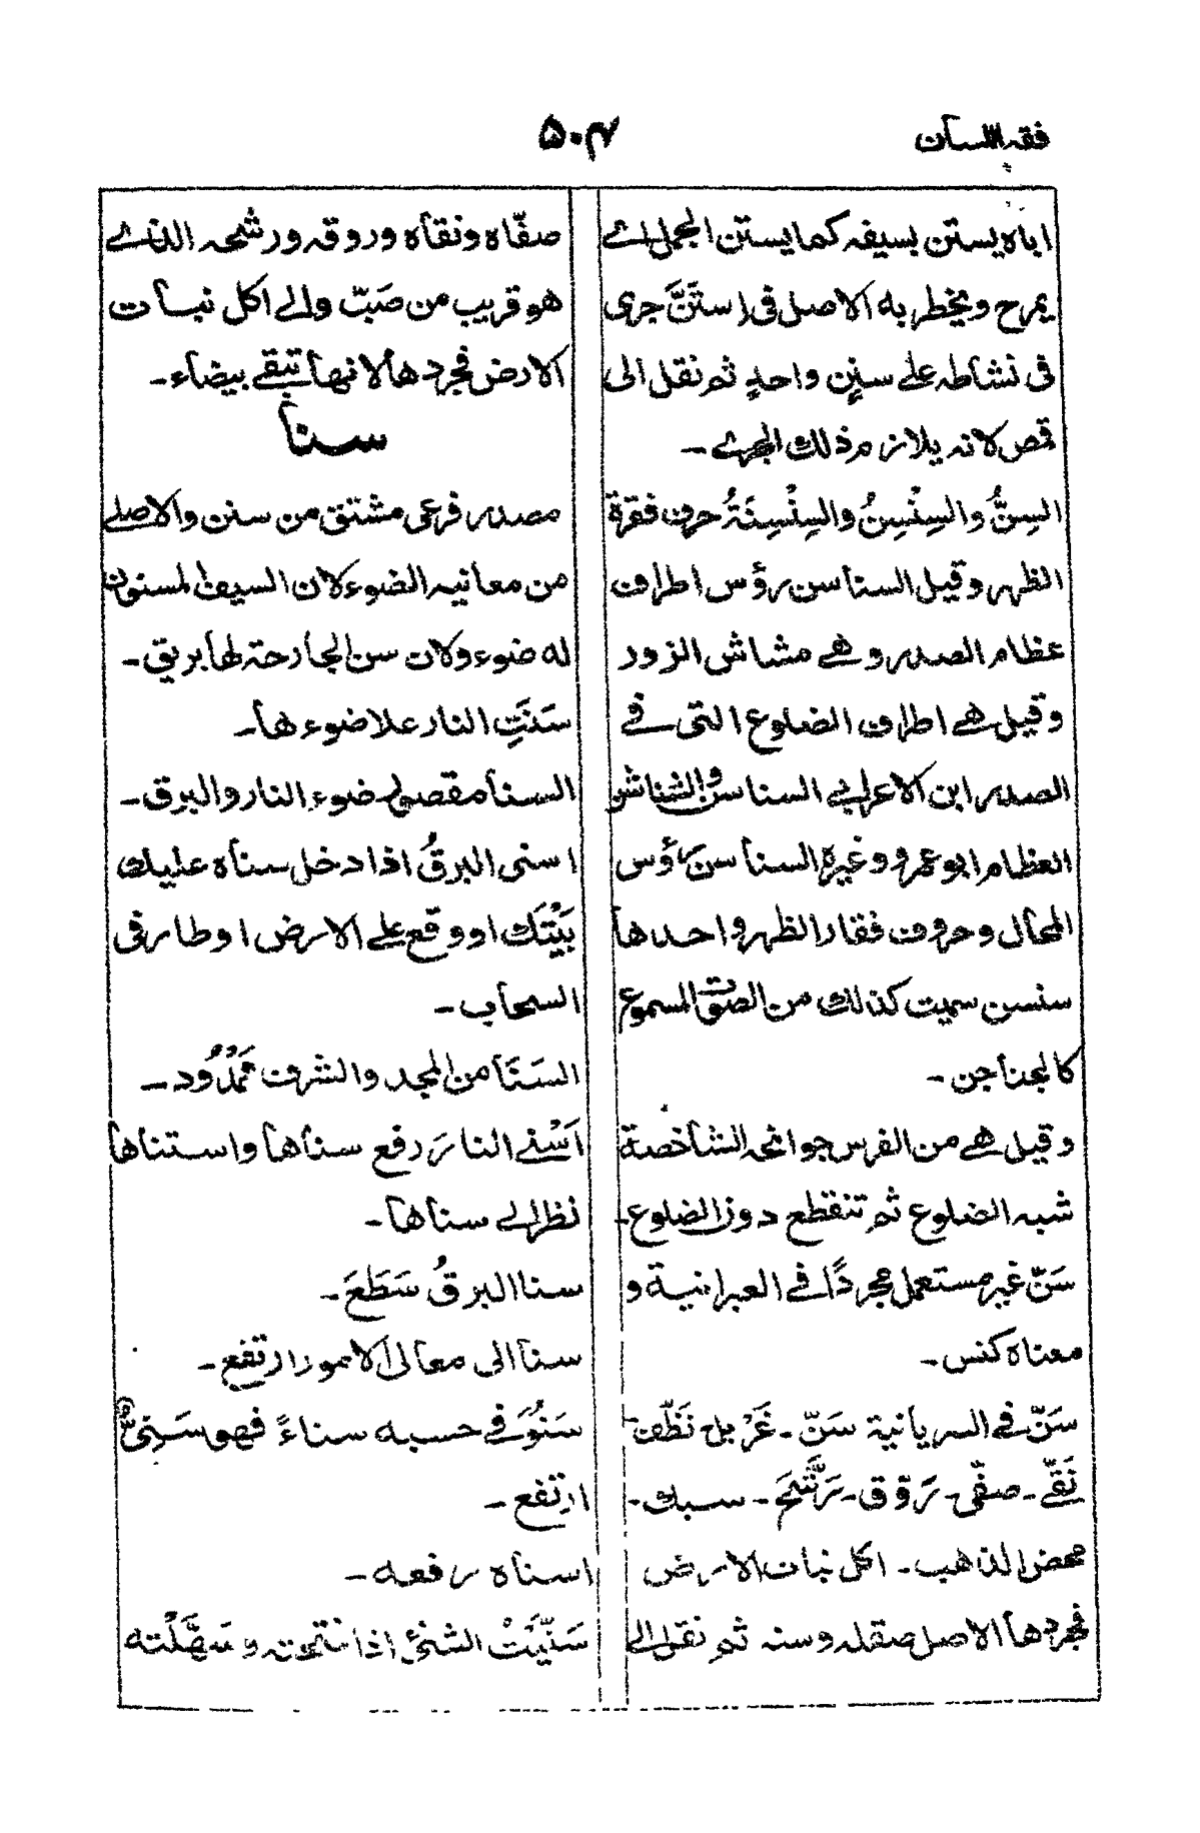 فقه اللسان
۵۰۴
اباه يستن بسيفه كما يستن الجمل اے
يمرح ويخطر به الاصل فى اِستَنَّ جرى
فى نشاطه علے سنِن واحدٍ ثم نقل الى
قمص لانه يلازم ذلك الجرے -
السِنُّ والسِنْسِنُ والسِنْسِنَةُ حرف فقرة
الظهر وقيل السناسن رؤس اطراف
عظام الصدر وهے مشاش الزور
وقيل هے اطراف الضلوع التى فے
الصدر ابن الاعرابے السناسن والشناشن
العظام ابو عمرو وغيره السناسن رؤس
المحال وحروف فقار الظهر واحدها
سنسن سميت كذلك من الصوت المسموع
كالجناجن -
وقيل هے من الفرس جوانحه الشاخصة
شبه الضلوع ثم تنقطع دون الضلوع -
سَنّ غير مستعمل مجردًا فے العبرانية و
معناه كنس -
سَنّ فے السريانية سَنّ - غَرْبل نَظّف -
نَقّے - صفّى - رَوّق - رَشَّحَ - سبك -
محض الذهب - اكل نبات الارض
فجردها الاصل صقله وسنه ثم نقل الى
صفّاه ونقاه وروقه ورشحه الذے
هو قريب من صَبّ والے اكل نبات
الارض فجردها لانها تبقے بيضاء -
سنا
مصدر فرعى مشتق من سنن والاصلے
من معانيه الضوء لان السيف المسنون
له ضوء ولان سن الجارحة لها بريق -
سَنَتِ النار علا ضوءها -
السنا مقصور ضوء النار والبرق -
اسنى البرقُ اذا دخل سناه عليك
بَيْتَك او وقع علے الارض او طار فى
السحاب -
السَنَا من المجد والشرف مَمْدُود -
اَسْنے النارَ رفع سناها واستناها
نظر الے سناها -
سنا البرقُ سَطَعَ -
سنا الى معالى الامور ارتفع -
سَنُوَ فے حسبه سناءً فهو سَنِىٌّ
ارتفع -
اسناه رفعه -
سَنّيَتْ الشئ اذا فتحته وسَهَّلْته